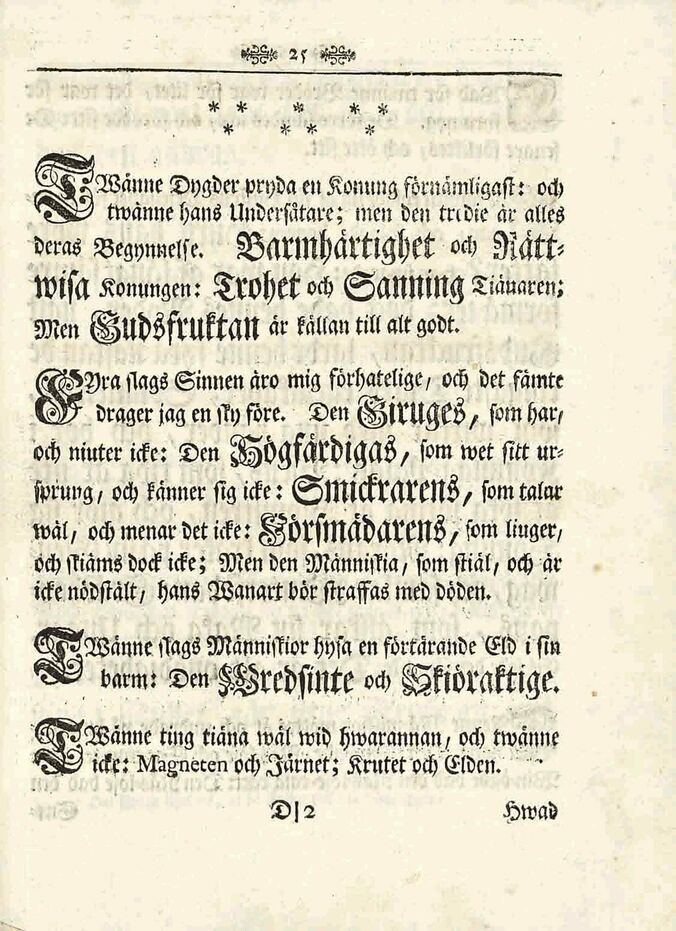 25
TWänne Dygder pryda en Konung förnämligast: och
twänne hans Undersåtare; men den tredie är alles
deras Begynnelse. Barmhärtighet och Rätt-
wisa Konungen: Trohet och Sanning Tiänaren;
Men Gudsfruktan är källan till alt godt.
FYra slags Sinnen äro mig förhatelige, och det fämte
drager jag en sky före. Den Giruges, som har,
och niuter icke: Den Högfärdigas, som wet sitt ur-
sprung, och känner sig icke: Smickrarens, som talar
wäl, och menar det icke: Försmädarens, som liuger,
och skiäms dock icke; Men den Människia, som stiäl, och är
icke nödstält, hans Wanart bör straffas med döden.
TWänne slags Människior hysa en förtärande Eld i sin
barm: Den Wredsinte och Skiöraktige.
TWänne ting tiäna wäl wid hwarannan, och twänne
icke: Magneten och Järnet; Krutet och Elden.
D 2 Hwad